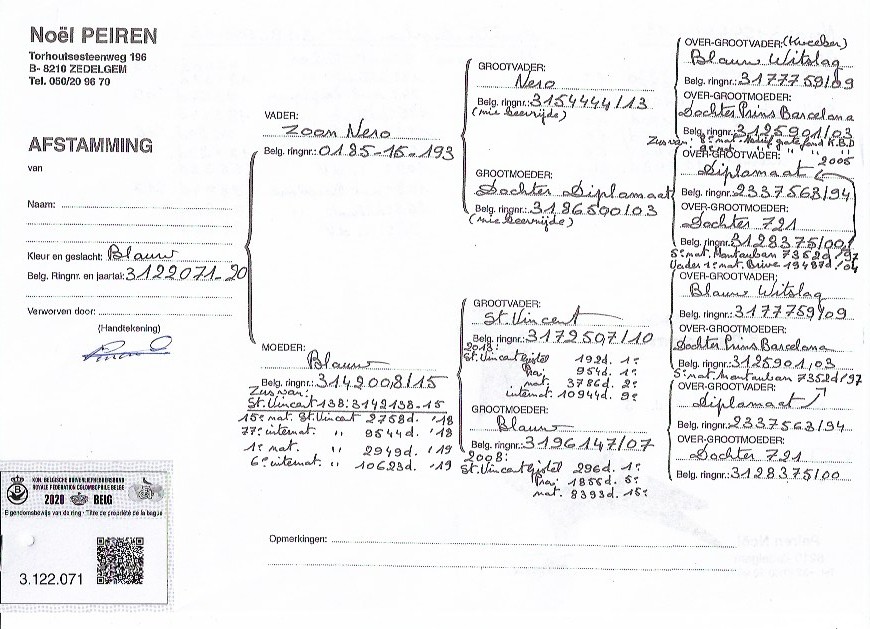 Noël PEIREN
Torhoutsesteenweg 196
B- 8210 ZEDELGEM
Tel. 050/20 96 70
AFSTAMMING
van
Naam:
Kleur en geslacht: Blauw
Belg. Ringnr. en jaartal: 3122071-20
Verworven door:
(Handtekening)
KON. BELGISCHE DUIVENLIEFHEBBERSBOND
ROYALE FEDERATION COLOMBOPHILE BELGE
2020 BELG
Eigendomsbewijs van de ring - Titre de propriété de la bague
3.122.071
VADER:
Zoon Nero
Belg. ringnr.: 0185-15-193
MOEDER:
Blauw
Belg. ringnr.: 3142008/15
Zus van:
St. Vincent 138: 3142138-15
15e nat. St. Vincent 2758d. '18
77e internat. " 9544d. '18
1e nat. " 2949d. '19
6e internat. " 10623d. '19
GROOTVADER:
Nero
Belg. ringnr.: 3154444/13
(nie beervijde)
GROOTMOEDER:
Dochter Diplomaat
Belg. ringnr.: 3186590/03
(nie beervijde)
GROOTVADER:
St. Vincent
Belg. ringnr.: 3172507/10
2013:
St. Vincent Gistel 192d. 1e
Prov. 954d. 1e
nat. 3786d. 2e
internat. 10944d. 9e
GROOTMOEDER:
Blauw
Belg. ringnr.: 3196147/07
2008:
St. Vincent Gistel 296d. 1e
Prov. 1855d. 5e
nat. 8393d. 15e
OVER-GROOTVADER: (Kweeker)
Blauw Witslag
Belg. ringnr.: 3177759/09
OVER-GROOTMOEDER:
Dochter Prins Barcelona
Belg. ringnr.: 3125901/03
Zus van: nat. fond K.B.D
2005
OVER-GROOTVADER:
Diplomaat
Belg. ringnr.: 2337563/94
OVER-GROOTMOEDER:
Dochter 721
Belg. ringnr.: 3128375/00
5e nat. Montauban 7352d/97
Vader 1e nat. Brive 19487d/04
OVER-GROOTVADER:
Blauw Witslag
Belg. ringnr.: 3177759/09
OVER-GROOTMOEDER:
Dochter Prins Barcelona
Belg. ringnr.: 3125901,03
5e nat. Montauban 7352d/97
OVER-GROOTVADER:
Diplomaat
Belg. ringnr.: 2337563/94
OVER-GROOTMOEDER:
Dochter 721
Belg. ringnr.: 3128375/00
Opmerkingen: